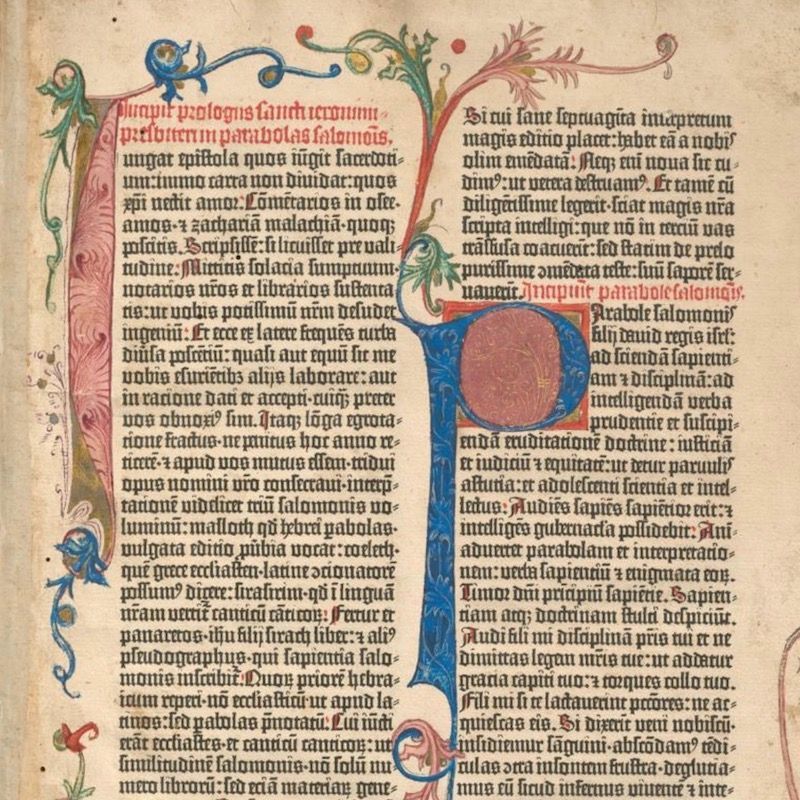 Incipit prologus sancti ieronimi
presbiteri in parabolas salomonis.
Iungat epistola quos iūgit sacerdoti-
um: immo carta non dividat: quos
xp̄i nectit amor. Cōmētarios in osee.
amos. ⁊ zachariā malachiā. quoqꝫ
poscitis. Scripsissē: si licuisset pre vali-
tudine. Mittitis solacia sumptuum.
notarios nr̄os et librarios sustenta-
tis: ut vobis potissimū nr̄m desudet
ingeniū. Et ecce ex latere frequēs turba
diūsa poscētiū: quasi aut equū sit me
vobis esurietibꝫ alijs laborare: aut
in racione dati et accepti. cuiqꝫ preter
vos obnoxiꝰ sim. Itaqꝫ lōga egrota-
tione fractus. ne penitus hoc anno re-
ticerē. ⁊ apud vos mutus essem. tridui
opus nomini vr̄o consecravi. interp̄-
tationē videlicet triū salomonis vo-
luminū: masloth qd̄ hebrei ꝑabolas.
vulgata editio ꝓūbia vocat: coeleth.
quē grece ecclesiasten. latine ↄcionatorē
possumꝰ dicere: sirasirim. qd̄ ī linguā
nr̄am vertit̄ canticū cāticoꝝ. Fertur et
panaretos. ihu filij sirach liber: ⁊ aliꝰ
pseudographus. qui sapientia salo-
monis inscribit̄. Quoꝝ priorē hebra-
icum reperi. nō ecclesiasticū ut apud la-
tinos: sed ꝑabolas p̄notatū. Cui iūcti
erāt ecclesiastes. et canticū canticoꝝ: ut
similitudinē salomonis. nō solū nu-
mero librorū: sed eciā materiaꝝ gene-
Si cui sane septuagīta interpretum
magis editio placet: habet eā a nobis
olim emēdatā. Neqꝫ eni nova sic cu-
dimꝰ: ut vetera destruamꝰ. Et tamē cū
diligētissime legerit. sciat magis nr̄a
scripta intelligi: que nō in terciū vas
trāsfusa coacuerīt: sed statim de prelo
purissime ↄmēdata teste: suū saporē ser-
vauerīt. Incipiūt parabole salomonis.
Parabole salomonis
filij david regis isrl̄:
ad sciendā sapienti-
am ⁊ disciplinā: ad
intelligendā verba
prudentie et suscipi-
endā eruditationē doctrine: iusticiā
et iudiciū ⁊ equitatē: ut detur parvulis
astutia: et adolescenti scientia et intel-
lectus. Audiēs sapiēs sapiētior erit: ⁊
intelligēs gubernacla possidebit. Ani-
advertet parabolam et interpretatio-
nem: verba sapientiū ⁊ enigmata eoꝝ.
Timor dn̄i prīcipiū sapiētie. Sapien-
tiam atqꝫ doctrinam stulti despiciūt.
Audi fili mi disciplinā pr̄is tui et ne
dimittas legem mr̄is tue: ut addatur
gracia capiti tuo: ⁊ torques collo tuo.
Fili mi si te lactaverint pctōres: ne ac-
quiescas eis. Si dixerit veni nobiscū.
insidiemur sāguini. abscōdamꝰ tēdi-
culas ↄtra insontem frustra. deglutia-
mus eū sicud infernus viventē ⁊ inte-